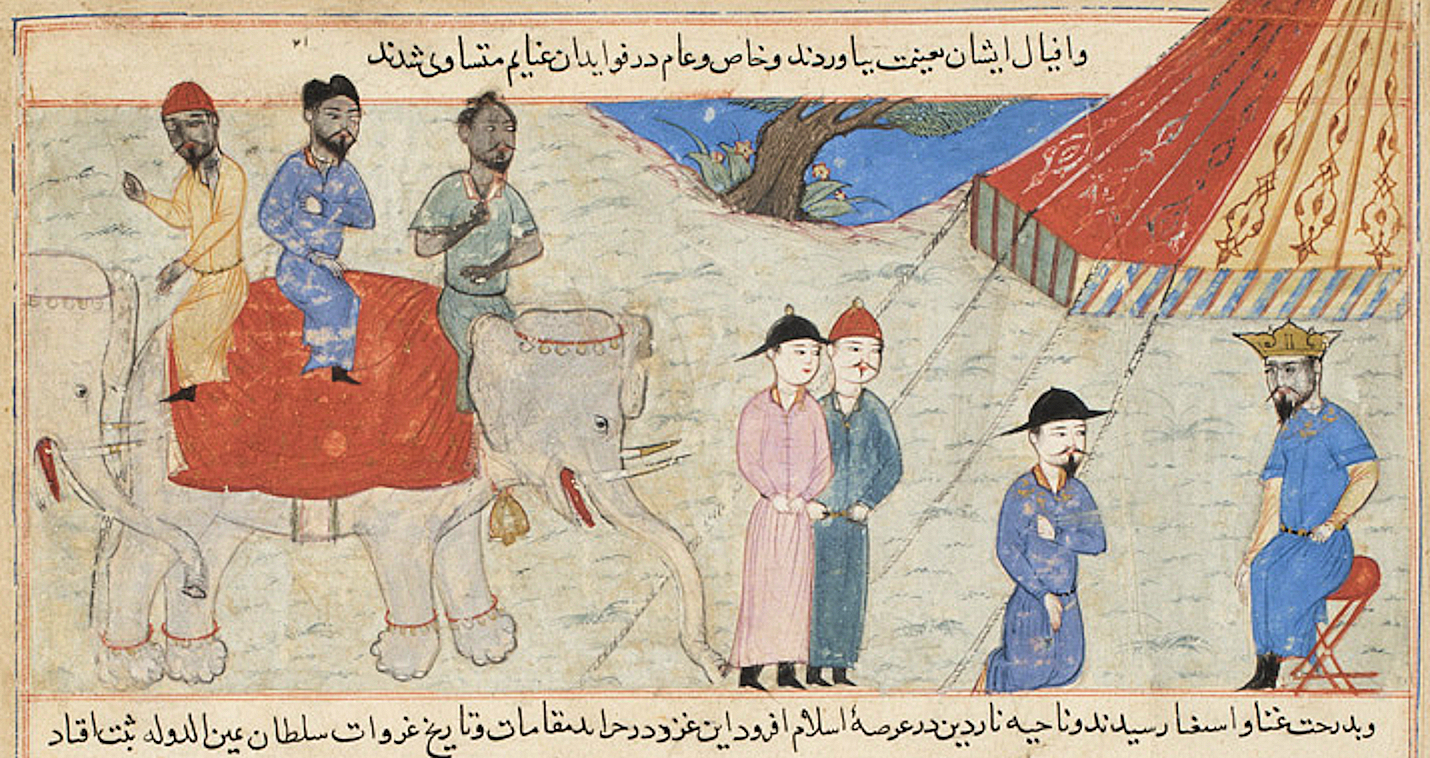 وافیال ایشان بغنیمت بیاوردند وخاص وعام درفواید ان غنایم متساوی شدند
وبدرجت غنا و استغنا رسیدند وناحیه ناردین درعرصهٔ اسلام افزود این غزو در جراید مقامات وتاریخ غزوات سلطان یمین الدوله ثبت افتاد